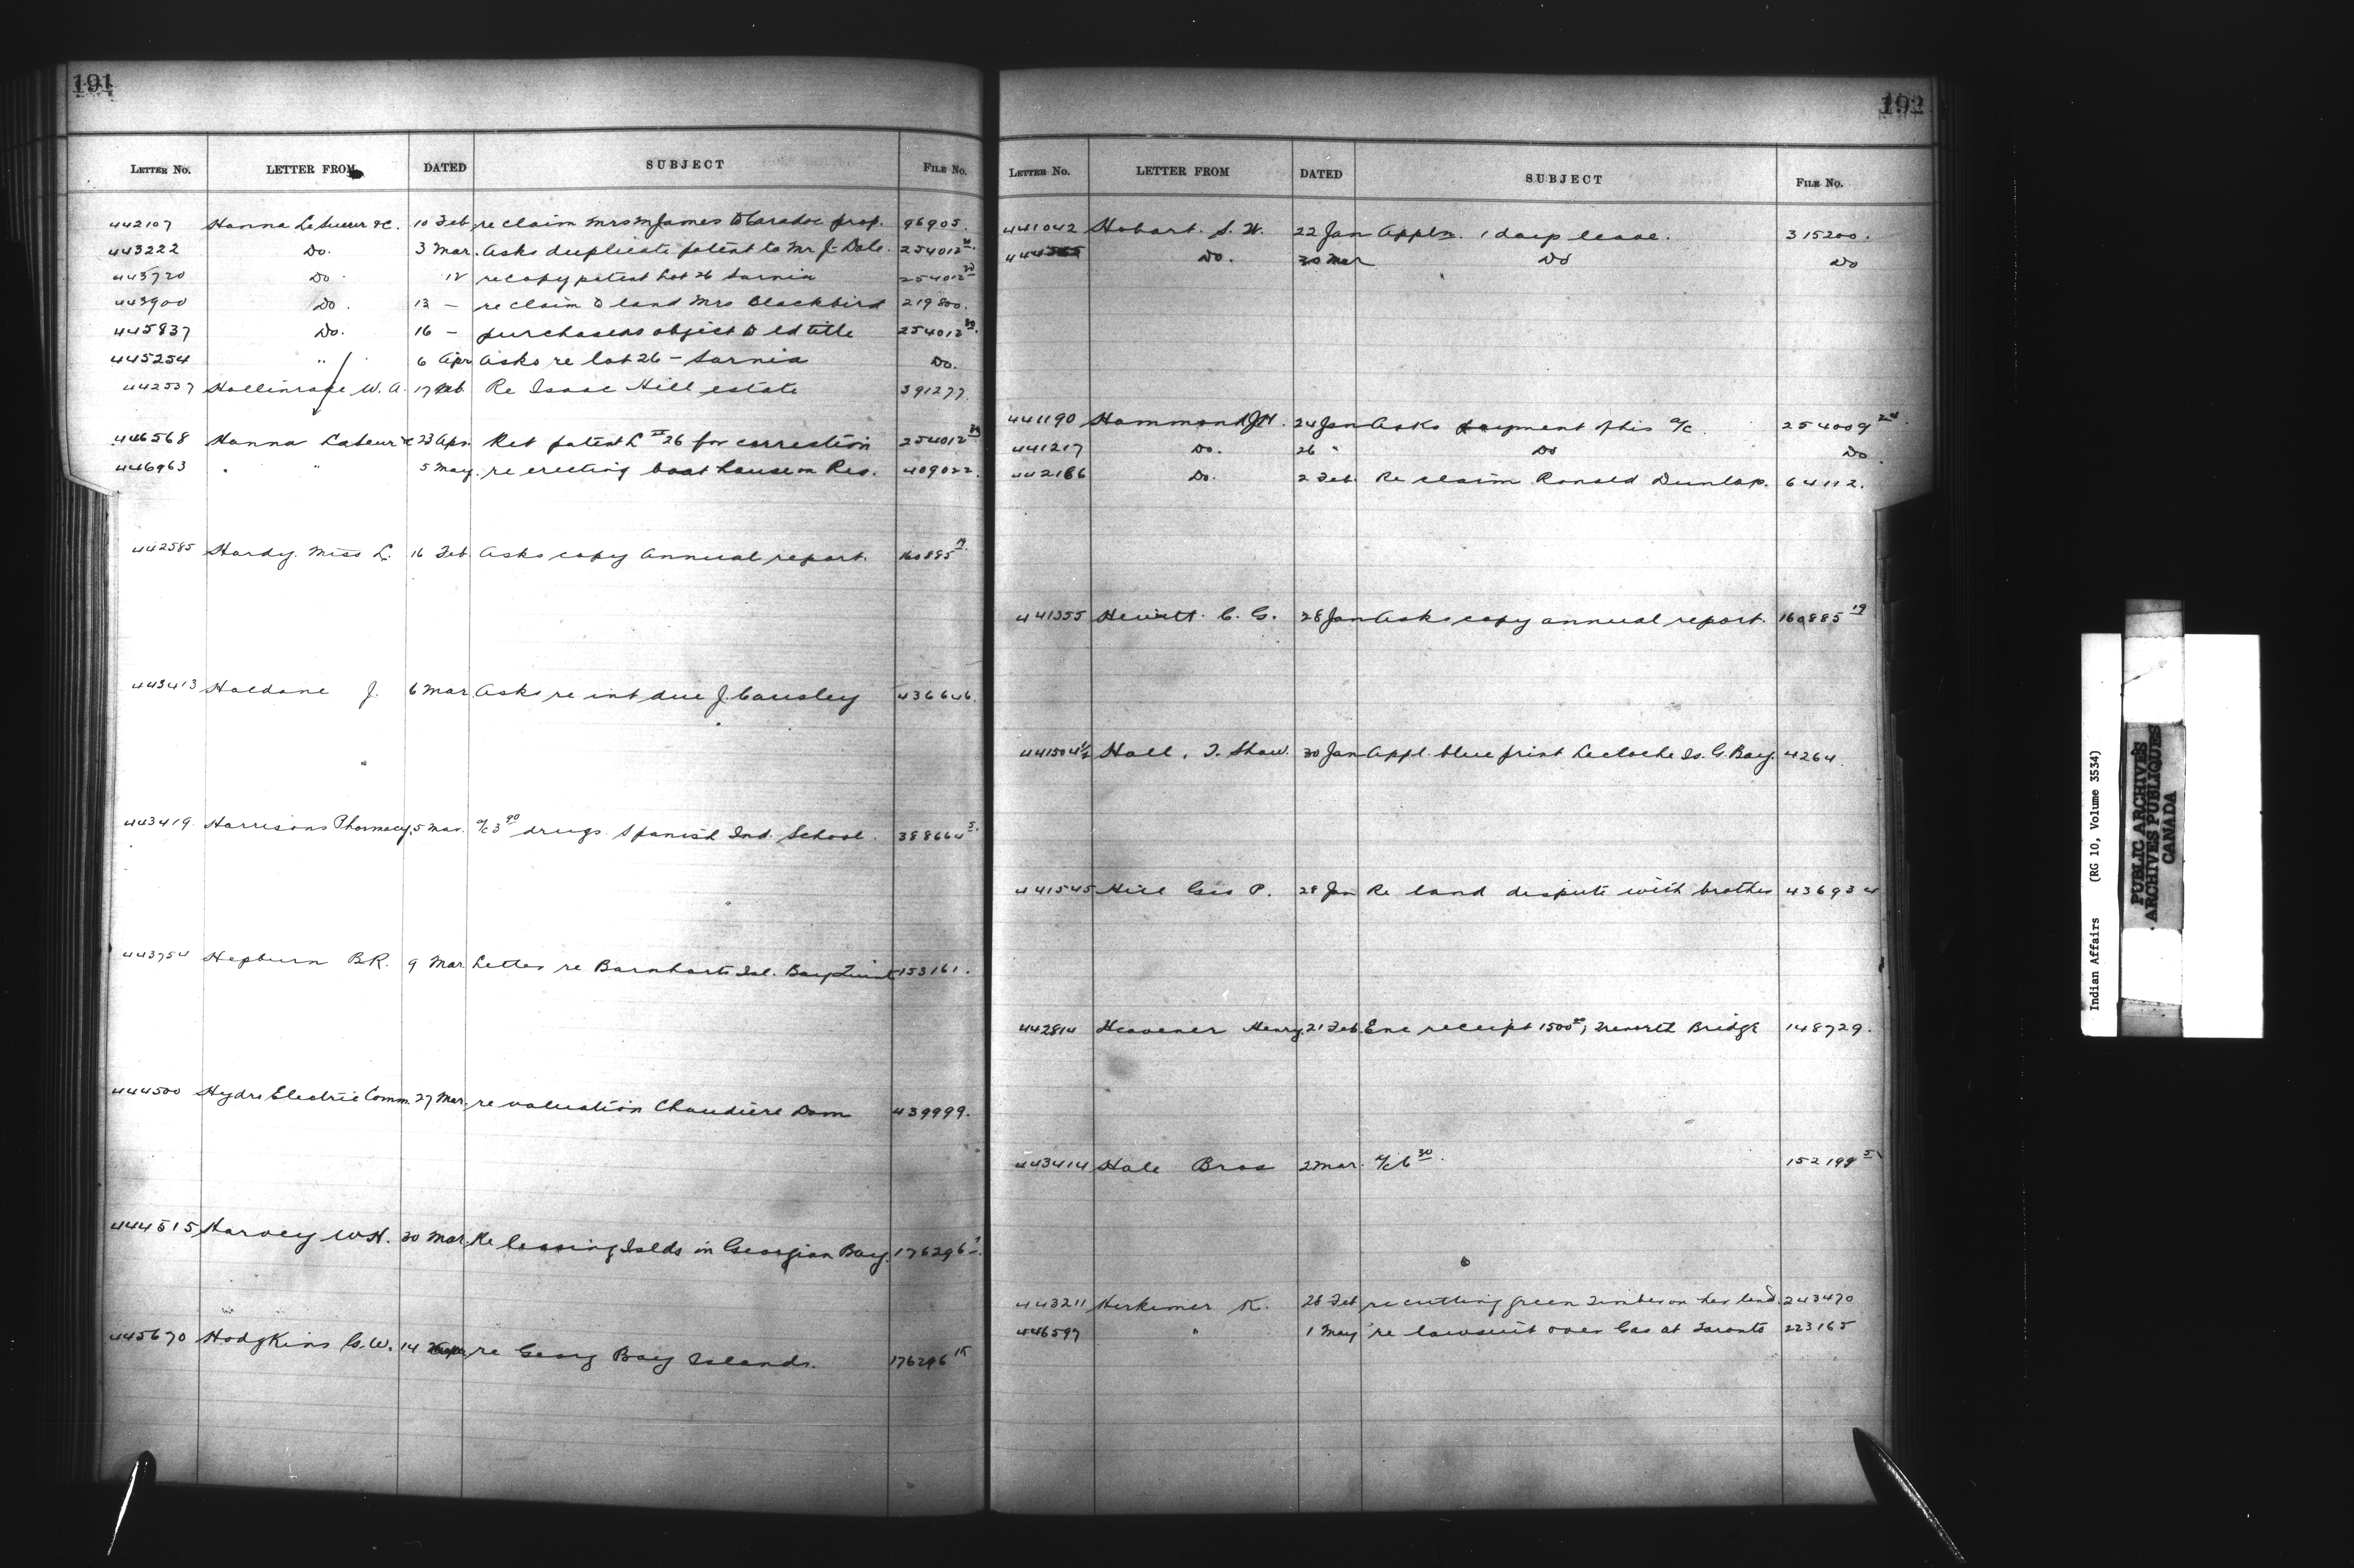 191
LETTER No. LETTER FROM DATED SUBJECT FILE No.
442107 Hanna LeSueur &c. 10 Feb re claim Mrs M James to Caradoc prop. 96905.
443222 Do. 3 Mar. Asks duplicate patent to Mr J. Dale. 254012
443720 Do 12 re copy patent Lot 26 Sarnia 254012
443900 Do. 13 — re claim to land Mrs Blackbird 219800.
445837 Do. 16 — purchasers object to ed title 254012
445254 " 6 Apr Asks re lot 26 — Sarnia Do.
442537 Hollinrake W. A. 17 Feb. Re Isaac Hill estate 391277
446568 Hanna LeSueur &c 23 Apr. Ret patent L 26 for correction 254012
446963 " " 5 May. re erecting boat house on Res. 409022.
442585 Hardy. Miss L. 16 Feb. Asks copy Annual report. 160885
443413 Haldane J. 6 Mar. Asks re int due J. Causley 436646.
443419. Harrisons Pharmacy. 5 Mar. a/c 3 90 drugs Spanish Ind. School. 388664 5.
443754 Hepburn B.R. 9 Mar. Letter re Barnharts Isl. Bay Quinte 153161.
444500 Hydro Electric Comm. 27 Mar. re valuation Chaudiere Dam 439999.
444515 Harvey W.H. 30 Mar. Re leasing Islds in Georgian Bay. 176296
445670 Hodgkins G.W. 14 re Georg Bay Islands. 176296
192
LETTER No. LETTER FROM DATED SUBJECT FILE No.
441042 Hobart. S. W. 22 Jan Appln. 1 lease. 315200.
444 Do. 30 Mar Do Do
441190 Hammond J H. 24 Jan Asks payment of his a/c. 254009 24.
441217 Do. 26 " Do Do.
442186 Do. 2 Feb. Re claim Ronald Dunlap. 64112.
441355 Hewitt C. G. 28 Jan Asks copy annual report. 160885 19
441504½ Hall, T. Shaw. 30 Jan Appl. blue print Lecloche Is. G. Bay. 4264.
441545 Hill Geo P. 28 Jan Re land dispute with brother 436934
442814 Heavener Henry 21 Feb. Enc receipt 1500, Bridge 148729.
443414 Hale Bros 2 Mar. a/c 6 30. 152199 5
443211 Herkimer K. 28 Feb re cutting green timber on her land. 243470
446597 " 1 May re lawsuit over Gas at Toronto 223165
Indian Affairs (RG 10, Volume 3534)
PUBLIC ARCHIVES
ARCHIVES PUBLIQUES
CANADA